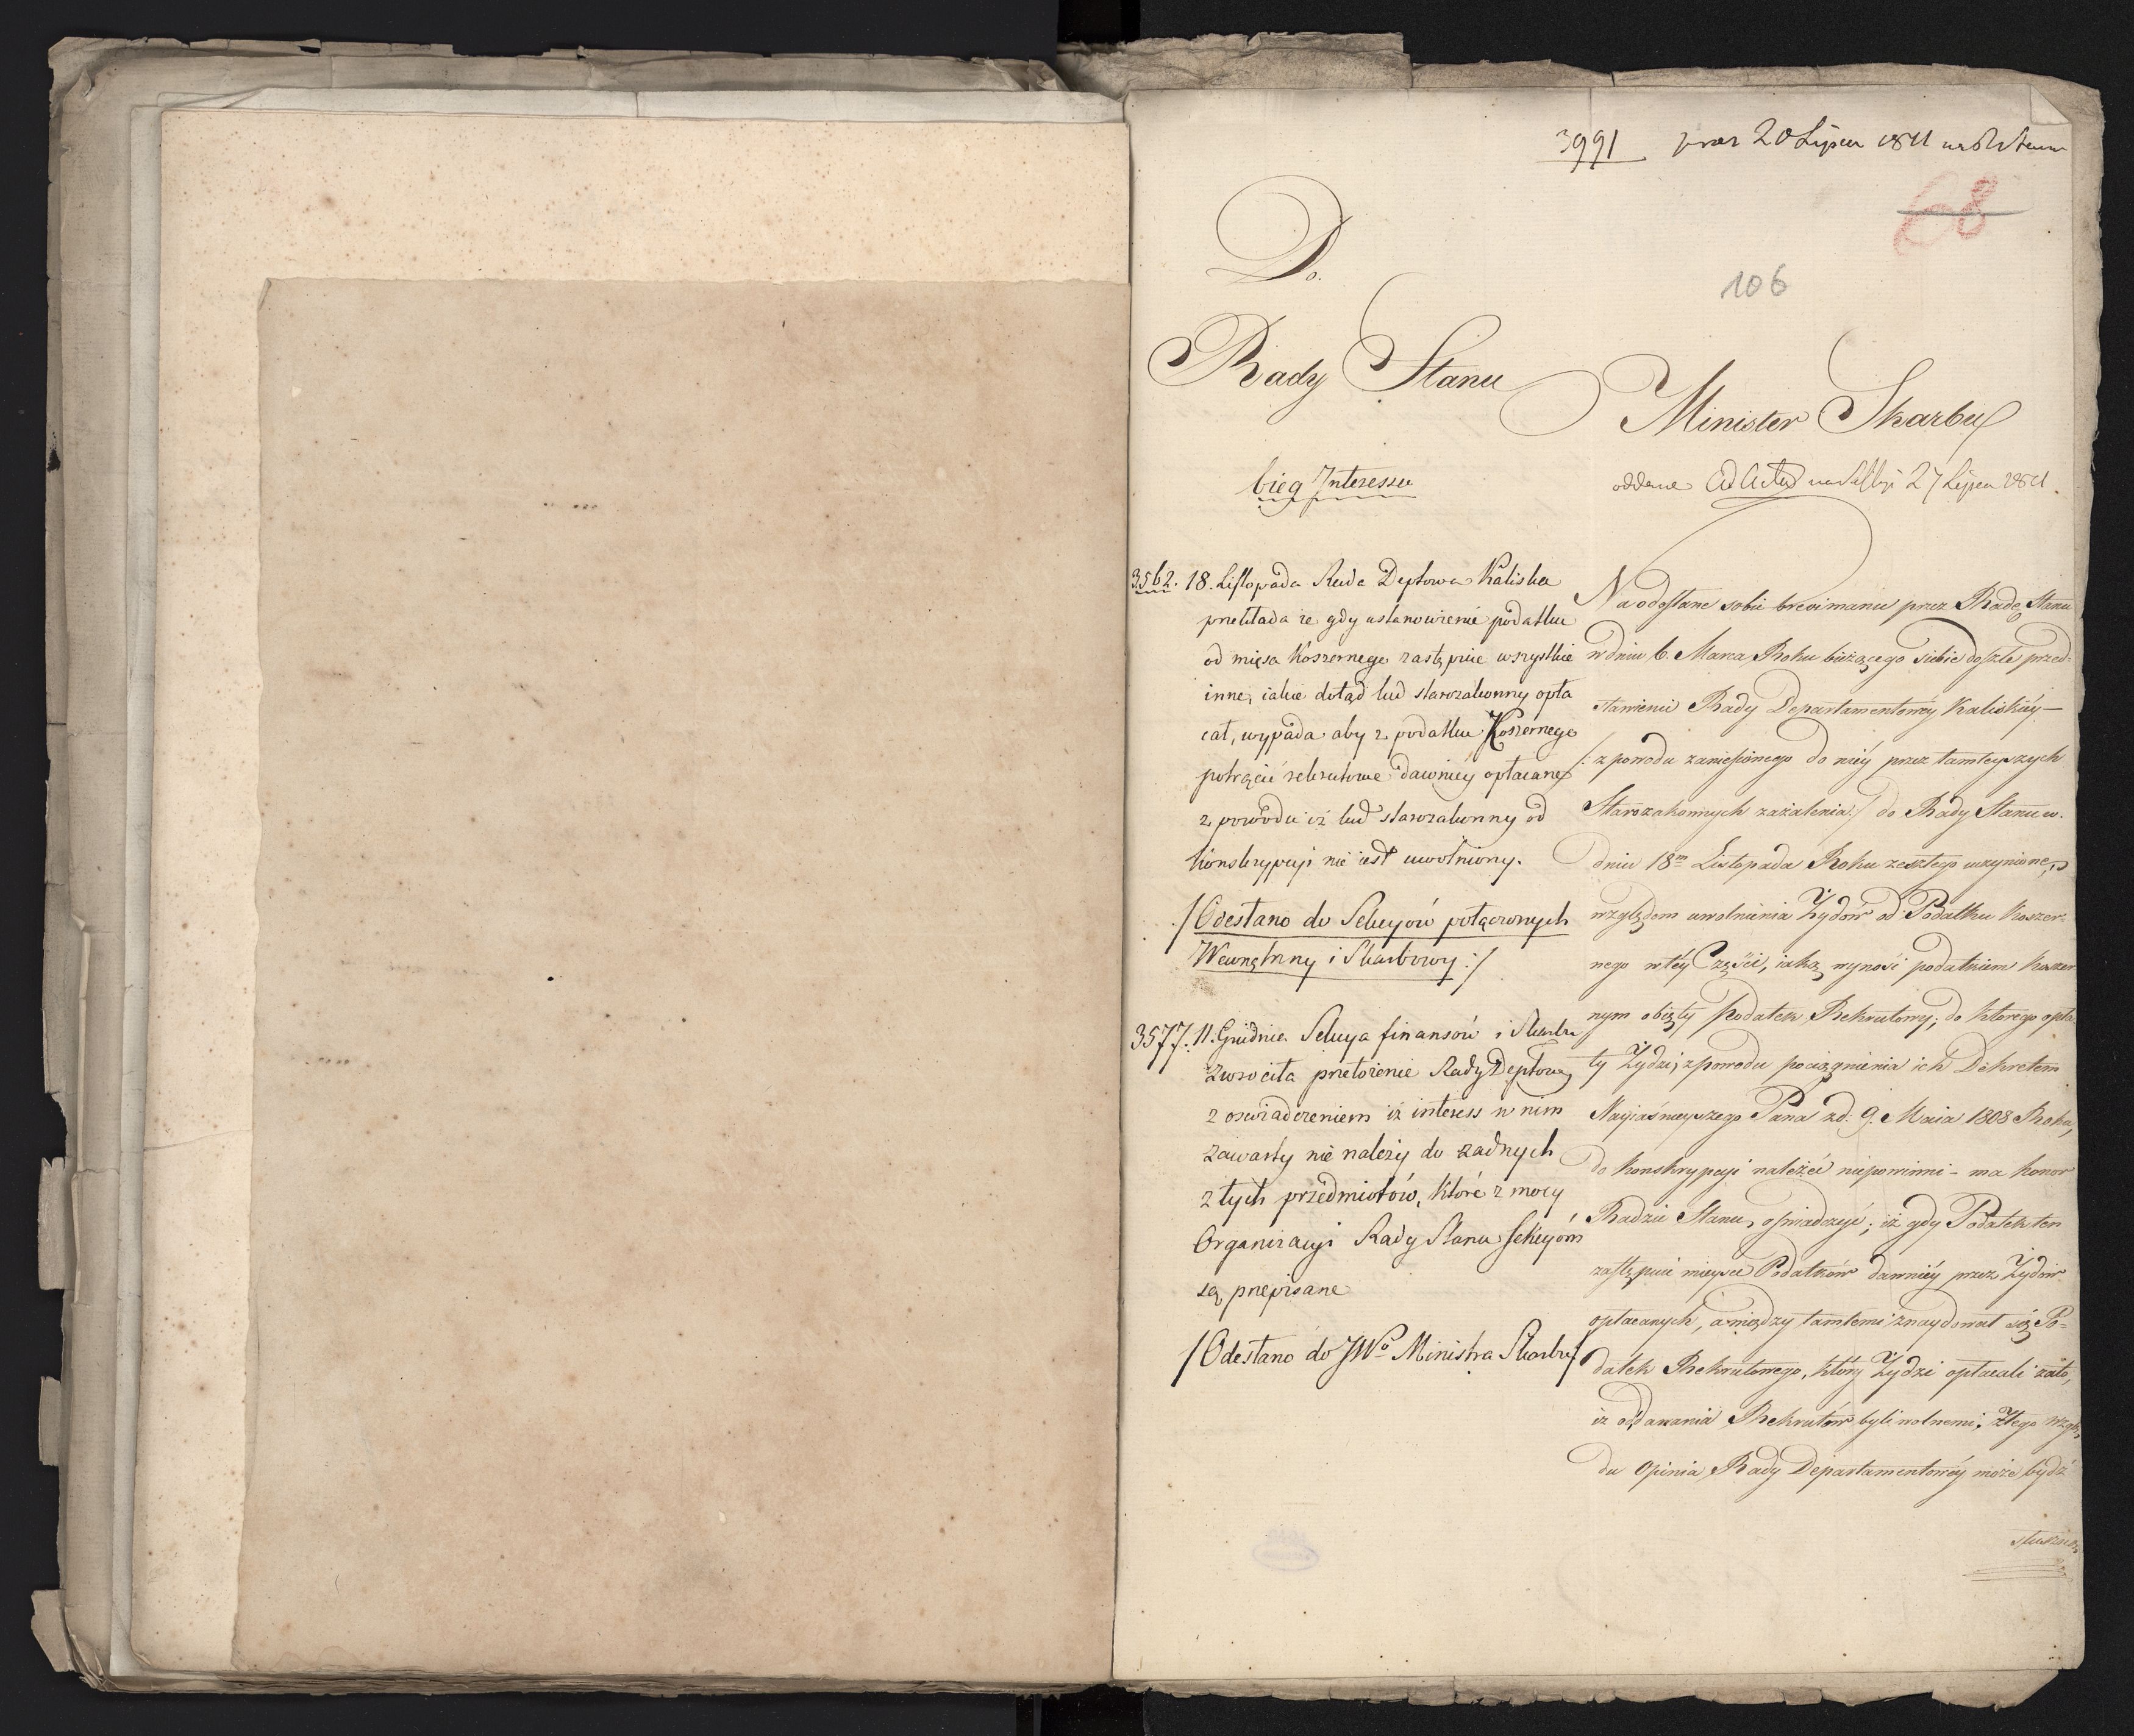 3991 prez 20 Lipca 1811
68
106
Do
Rady Stanu
Minister Skarbu
bieg Interessu
oddane ad Acta na Sessyi 27 Lipca 1811.
3562. 18. Listopada Rada Deptowa Kaliska
przekłada ze gdy ustanowienie podatku
od mięsa Koszernego zastąpiie wszystkie
inne, iakie dotąd lud starozakonny opła
cał, wypada aby z podatku Koszernego
potrącić rekrutowe dawniey opłacane
z powodu iż lud starozakonny od
konskrypcyi nie iest uwolniony.
/Odesłano do Sekcyów połączonych
Wewnętrzny i Skarbowy:/
3577. 11. Grudnia Sekcya finansów i Skarbu
zwrociła przełożenie Rady Deptowey
z oswiadczeniem iż interess w nim
zawarty nie należy do żadnych
z tych przedmiotów, które z mocy
Organizacyi Rady Stanu Sekcyóm
są przepisane
/Odesłano do JWo Ministra Skarbu/
Na odesłane sobie brevi manu przez Radę Stanu
w dniu 6. Marca Roku bieżącego siebie doszłe przed-
stawienie Rady Departamentowéy Kaliskiéy —
/: z powodu zaniesionego do niéy przez tamteyszych
Starozakonnych zażalenia :/ do Rady Stanu w
dniu 18m Listopada Roku zeszłego uczynione,
względem uwolnienia Żydów od Podatku Koszer-
nego w téy Części, iaką wynosi podatkiem koszer
nym obięty Podatek Rekrutowy; do którego opła-
ty Żydzi; z powodu pociągnienia ich Dekretem
Nayiaśnieyszego Pana zd: 9. Maia 1808 Roku,
do konskrypcyi należéć niepowinni – ma honor
Radzie Stanu oświadczyć; iż gdy Podatek ten
zastąpił mieysce Podatków dawniéy przez Żydów
opłacanych, a między tamtemi znaydował się Po-
datek Rekrutowego, który Żydzi opłacali zato,
iż od dawania Rekrutów byli wolnemi; z tego wzglę-
du Opinia Rady Departamentowéy może bydź
słuszną